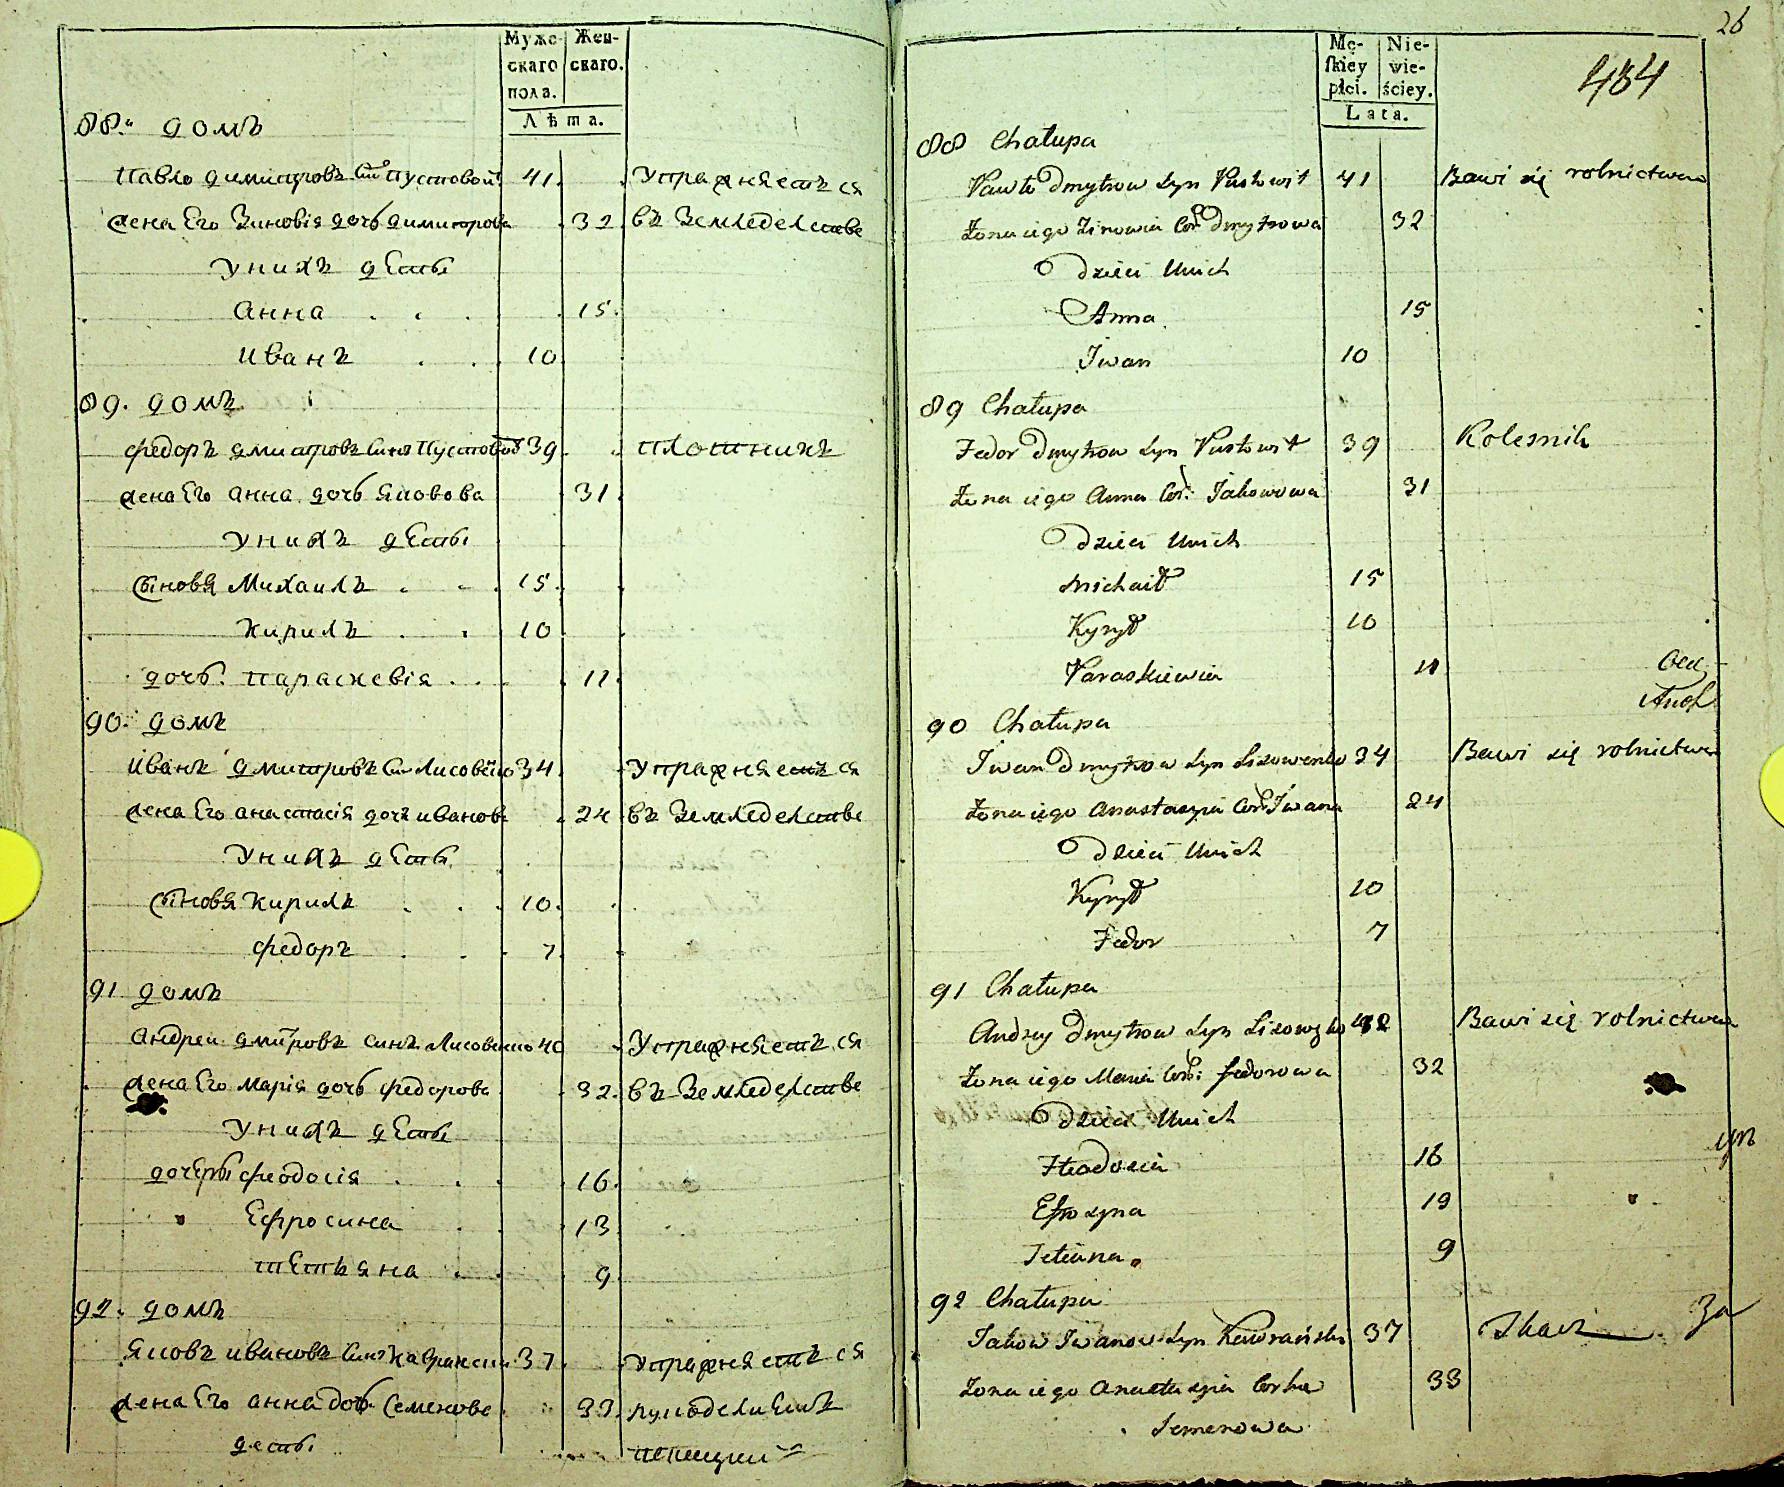 Муже- Жен-
скаго скаго.
пола.
Лѣта.
88. домъ
Павло димитровъ Сы Пустовой 41. Упражняетъся
жена Его Зиновія дочь димитрова 32 въ Земледелстве
Унихъ дети
Анна 15.
Иванъ 10
89. домъ
Федоръ дмитровъ Синъ Пустовой 39 Плотникъ
жена Его Анна дочь Яковова 31
Унихъ дети
Сыновя Михаилъ 15.
Кирилъ 10
дочь. Параскевія 11.
90. домъ
Иванъ дмитровъ Си Лисовенко 34. Упражняетъся
жена Его анастасія дочь иванова 24 въ Земледелстве
Унихъ дети
Сыновя Кирилъ 10.
Федоръ 7.
91 домъ
Андреи дмитровъ Синъ Лисовенко 40 Упражняетъ.ся
жена Его Марія дочь Федорова 32. въ Земледелстве
Унихъ дети
дочеры Феодосія 16.
Ефросина 13
Тетьяна 9.
92. домъ
Яковъ ивановъ Синъ Каврански 37 Упражняетъся
жена Его анна дочь Семенова 33. рукоделиемъ
дети. ткацким
26
Mę- Nie-
skiey wie-
płci. ściey.
Lata.
434
88 Chałupa
Pawło Dmytrow Syn Pustowit 41 Bawi się rolnictwem
Żona iego Zinowia Cor: Dmytrowa 32
Dzieci Unich
Anna 15
Iwan 10
89 Chałupa
Fedor Dmytrow Syn Pustowit 39 Kolesnik
Żona iego Anna Cor: Jakowowa 31
Dzieci Unich
Michaił 15
Kyrył 10
Paraskiewia 11
90 Chałupa
Iwan Dmytrow Syn Lisowenko 34 Bawi się rolnictwem
Żona iego Anastazyia Cor: Iwana 24
Dzieci Unich
Kyrył 10
Fedor 7
91 Chałupa
Andrzy Dmytrow Syn Lisowenko Bawi się rolnictwem
Żona iego Maria Cor: Fedorowa 32
Dzieci Unich
Fteodosia 16
Efrosyna 19
Tetiana 9
92 Chałupa
Jakow Iwanow Syn Kawrański 37 Tkacz Za
Żona iego Anastazyia Corka 33
Semenowa